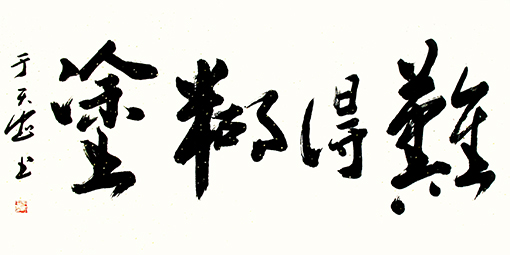 難得糊塗
于天池书